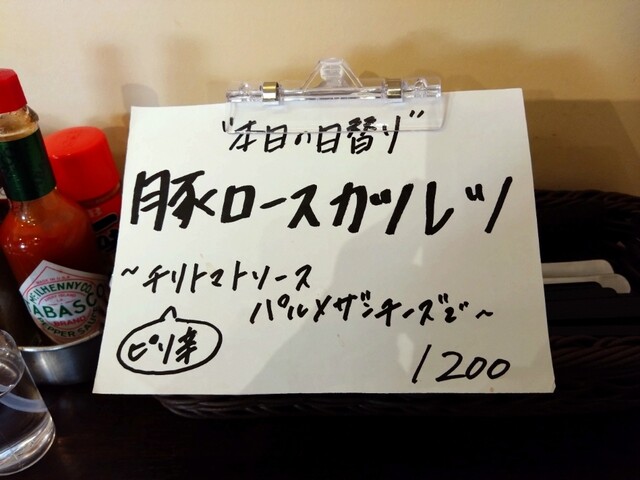 "本日の日替り"
豚ロースカツレツ
~チリトマトソース
パルメザンチーズで~
ピリ辛
1200
McILHENNY CO.
TABASCO
BRAND
PEPPER SAUCE